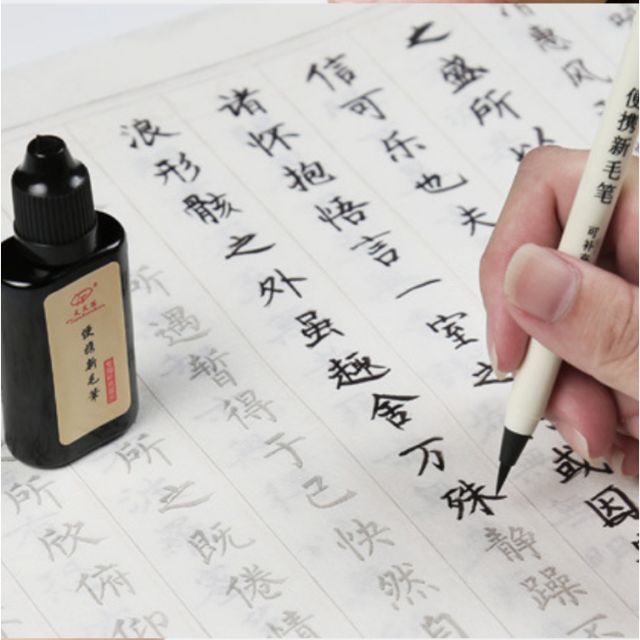 惠风
之盛所以
信可乐也夫
诸怀抱悟言一室之
或因
浪形骸之外虽趣舍万殊
静躁
所遇暂得于己快然自
所之既倦情
所欣俯仰
便携新毛笔
可补
便携新毛筆